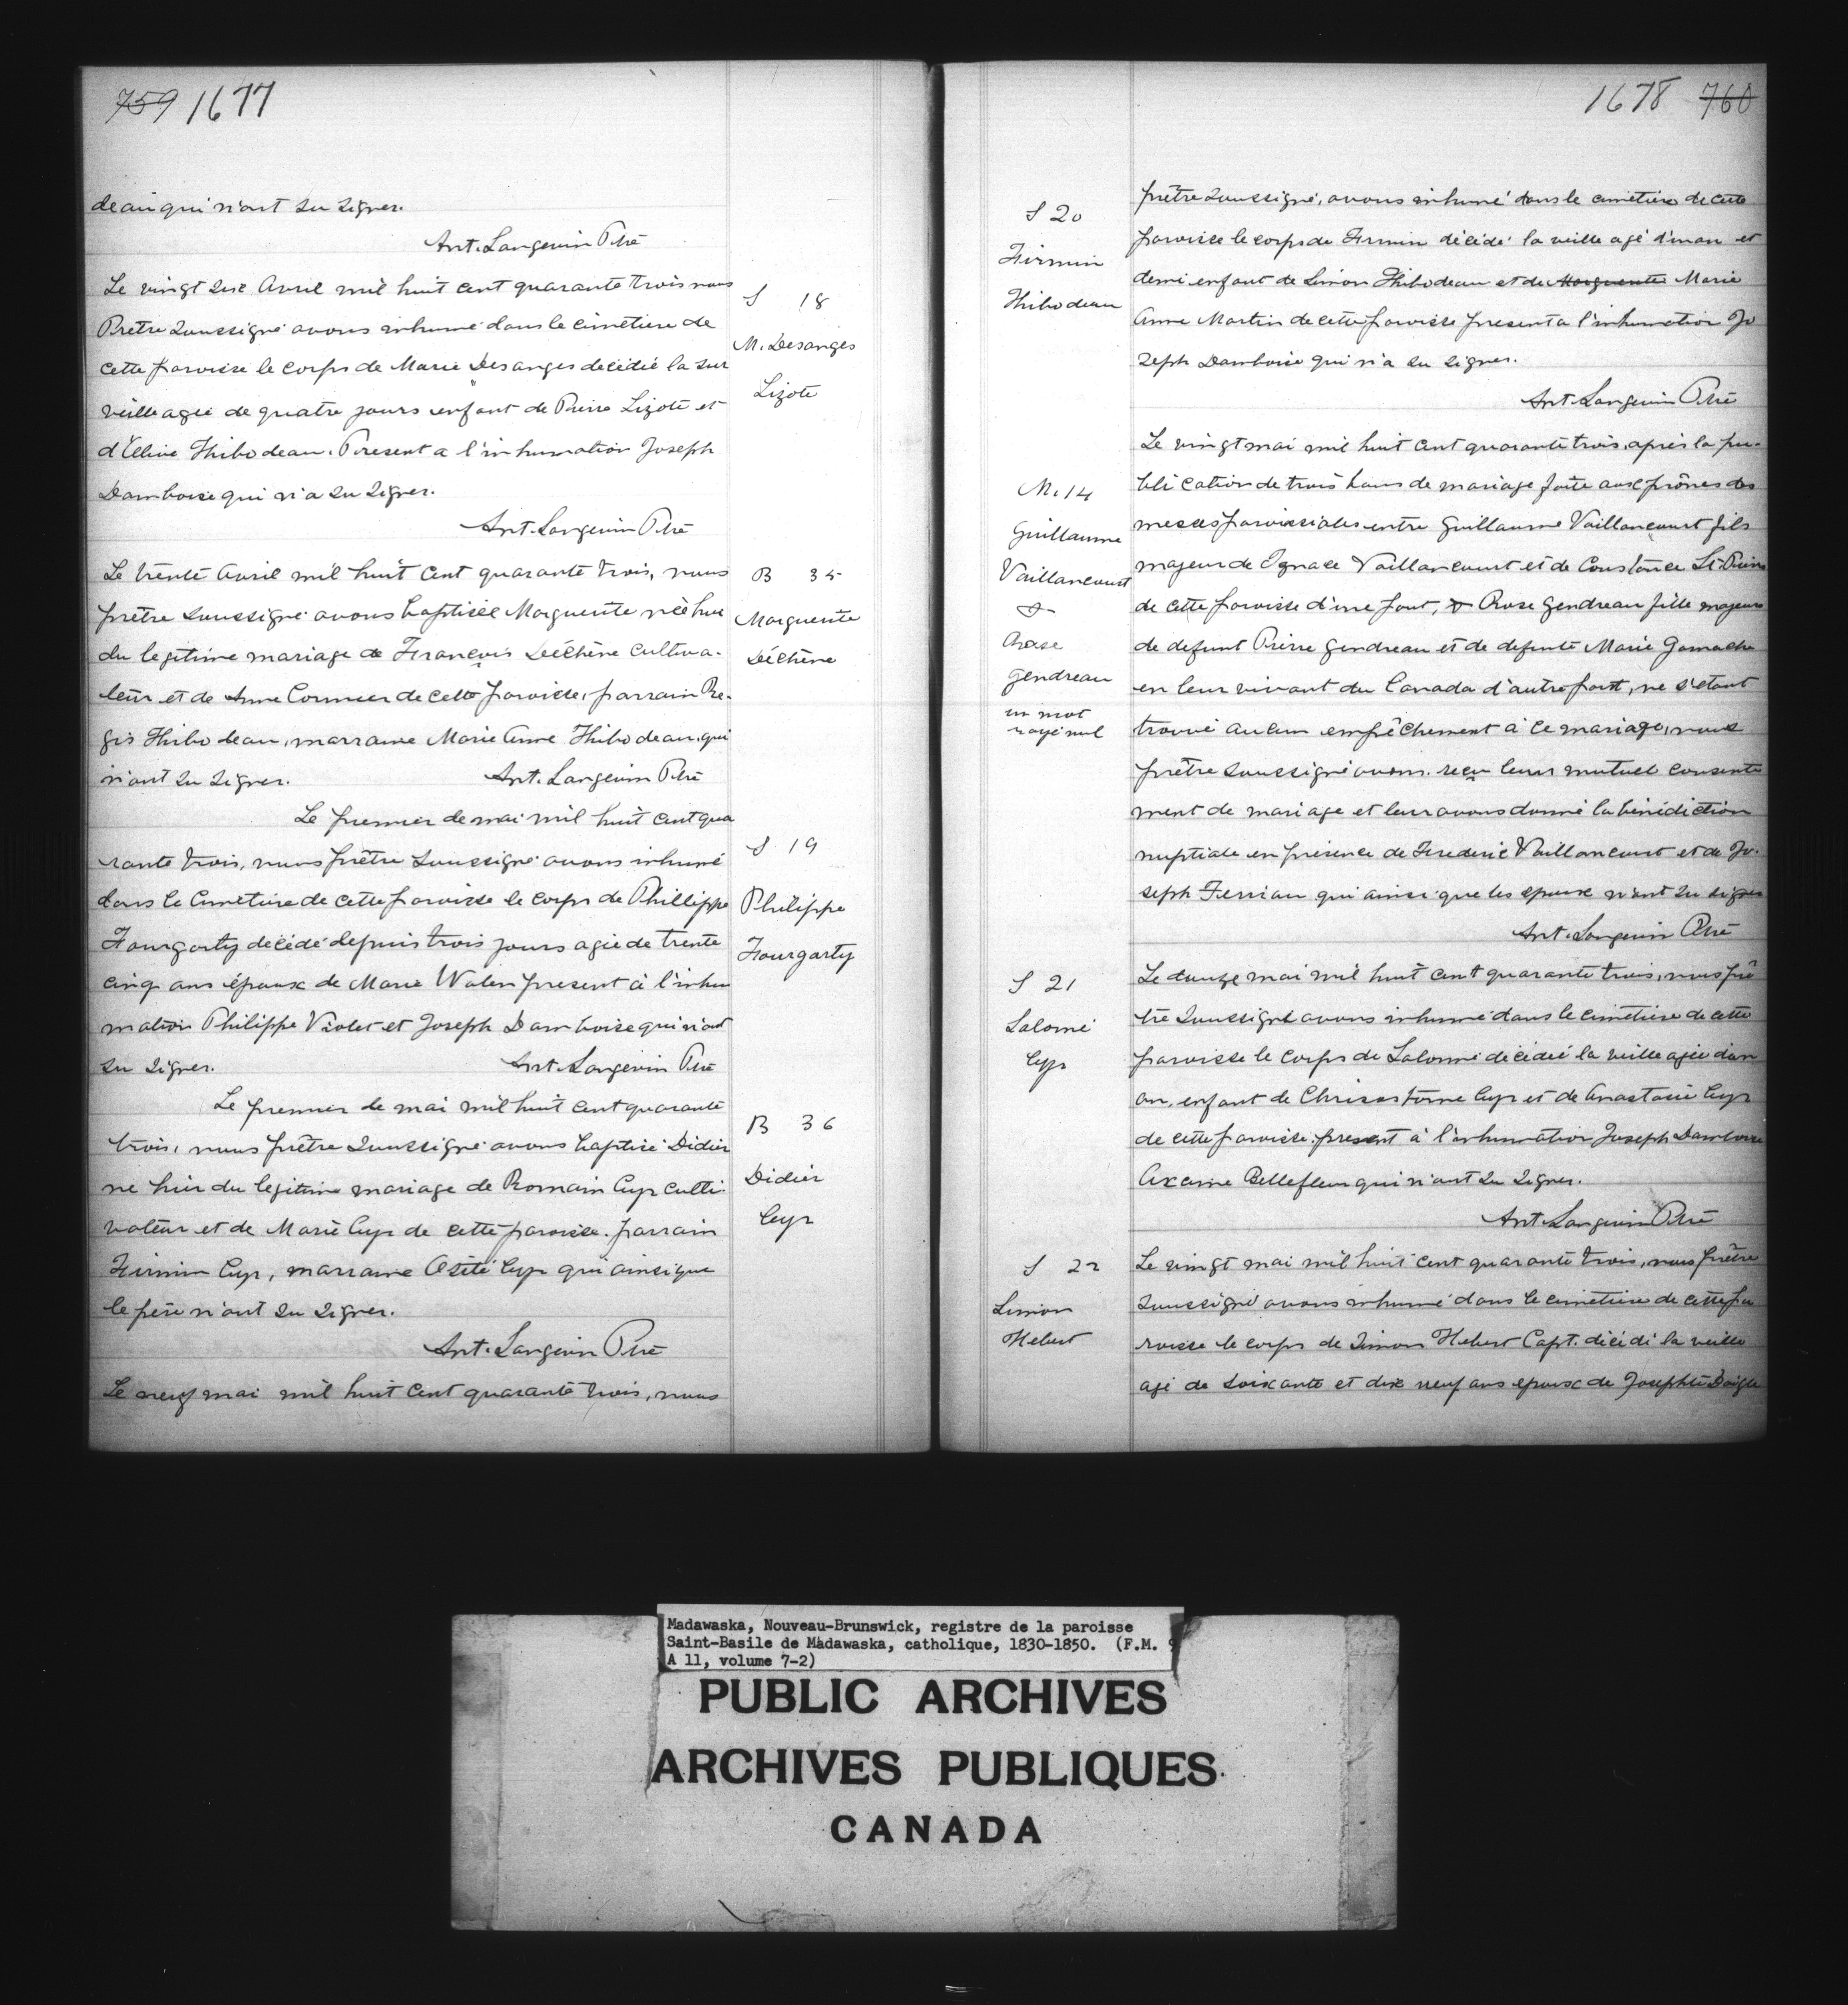 759 1677
deau qui n'ont su signer.
Ant. Langevin Ptre
Le vingt six Avril mil huit cent quarante trois nous
Prêtre soussigné avons inhumé dans le cimetiere de
cette paroisse le corps de Marie Desanges décédée la sur
veille agée de quatre jours enfant de Pierre Lizote et
d'Elive Thibodeau. Present a l'inhumation Joseph
Damboise qui n'a su signer.
Ant. Langevin Ptre
S 18
M. Desanges
Lizote
Le trente Avril mil huit cent quarante trois, nous
prêtre soussigné avons baptisée Marguerite née hier
du legitime mariage de François Déchêne cultiva-
teur et de Anne Cormier de cette paroisse, parrain Re-
gis Thibodeau, marraine Marie Anne Thibodeau, qui
n'ont su signer. Ant. Langevin Ptre
B 35
Marguerite
Déchêne
Le premier de mai mil huit cent qua
rante trois, nous prêtre soussigné avons inhumé
dans le cimetiere de cette paroisse le corps de Phillippe
Fourgarty décédé depuis trois jours agée de trente
cinq ans époux de Marie Walen present à l'inhu
mation Philippe Violet et Joseph Damboise qui n'ont
su signer. Ant. Langevin Ptre
S 19
Philippe
Fourgarty
Le premier de mai mil huit cent quarante
trois, nous prêtre soussigné avons baptisé Didier
né hier du legitime mariage de Romain Cyr culti-
vateur et de Marie Cyr de cette paroisse. parrain
Firmin Cyr, marraine Osité Cyr qui ainsi que
le père n'ont su signer.
Ant. Langevin Ptre
B 36
Didier
Cyr
Le neuf mai mil huit cent quarante trois, nous
1678 760
S 20
Firmin
Thibodeau
prêtre soussigné, avons inhumé dans le cimetiere de cette
paroisse le corps de Firmin décédé la veille agé d'un an et
demi enfant de Simon Thibodeau et de Marguerite Marie
Anne Martin de cette paroisse present a l'inhumation Jo
seph Damboise qui n'a su signer.
Ant. Langevin Ptre
M. 14
Guillaume
Vaillancourt
&
Rose
Gendreau
un mot
rayé nul
Le vingt mai mil huit cent quarante trois, après la pu-
blication de trois bans de mariage faite aux prônes des
messes paroissiales entre Guillaume Vaillancourt fils
majeur de Ignace Vaillancourt et de Constance St-Pierre
de cette paroisse d'une part, & Rose Gendreau fille majeure
de defunt Pierre Gendreau et de defunte Marie Gamache
en leur vivant du Canada d'autre part, ne s'étant
trouvé aucun empêchement à ce mariage, nous
prêtre soussigné avons reçu leur mutuel consente
ment de mariage et leur avons donné la bénédiction
nuptiale en présence de Frederic Vaillancourt et de Jo-
seph Terriau qui ainsi que les epoux n'ont su signer
Ant. Langevin Ptre
S 21
Salomé
Cyr
Le douze mai mil huit cent quarante trois, nous prê
tre soussigné avons inhumé dans le cimetiere de cette
paroisse le corps de Salomé décédée la veille agée d'un
an, enfant de Chrisostôme Cyr et de Anastasie Cyr
de cette paroisse. present à l'inhumation Joseph Damboise
Bellefleur qui n'ont su signer.
Ant. Langevin Ptre
S 22
Simon
Hebert
Le vingt mai mil huit cent quarante trois, nous prêtre
soussigné avons inhumé dans le cimetiere de cette pa
roisse le corps de Simon Hebert Capt. décédé la veille
agé de soixante et dix neuf ans epoux de Josephte Daigle
Madawaska, Nouveau-Brunswick, registre de la paroisse
Saint-Basile de Madawaska, catholique, 1830-1850. (F.M. 9
A 11, volume 7-2)
PUBLIC ARCHIVES
ARCHIVES PUBLIQUES
CANADA